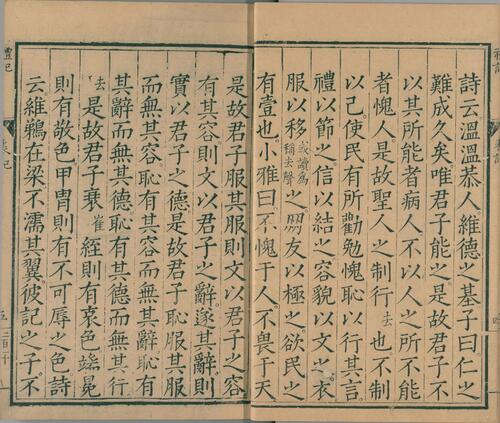 詩云溫溫恭人維德之基子曰仁之
難成久矣唯君子能之是故君子不
以其所能者病人不以人之所不能
者愧人是故聖人之制行去也不制
以己使民有所勸勉愧恥以行其言
禮以節之信以結之容貌以文之衣
服以移或讀為稱去聲之朋友以極之欲民之
有壹也小雅曰不愧于人不畏于天
是故君子服其服則文以君子之容
有其容則文以君子之辭遂其辭則
實以君子之德是故君子恥服其服
而無其容恥有其容而無其辭恥有
其辭而無其德恥有其德而無其行
去是故君子衰崔絰則有哀色端冕
則有敬色甲冑則有不可辱之色詩
云維鵜在梁不濡其翼彼記之子不
禮記
表記
五